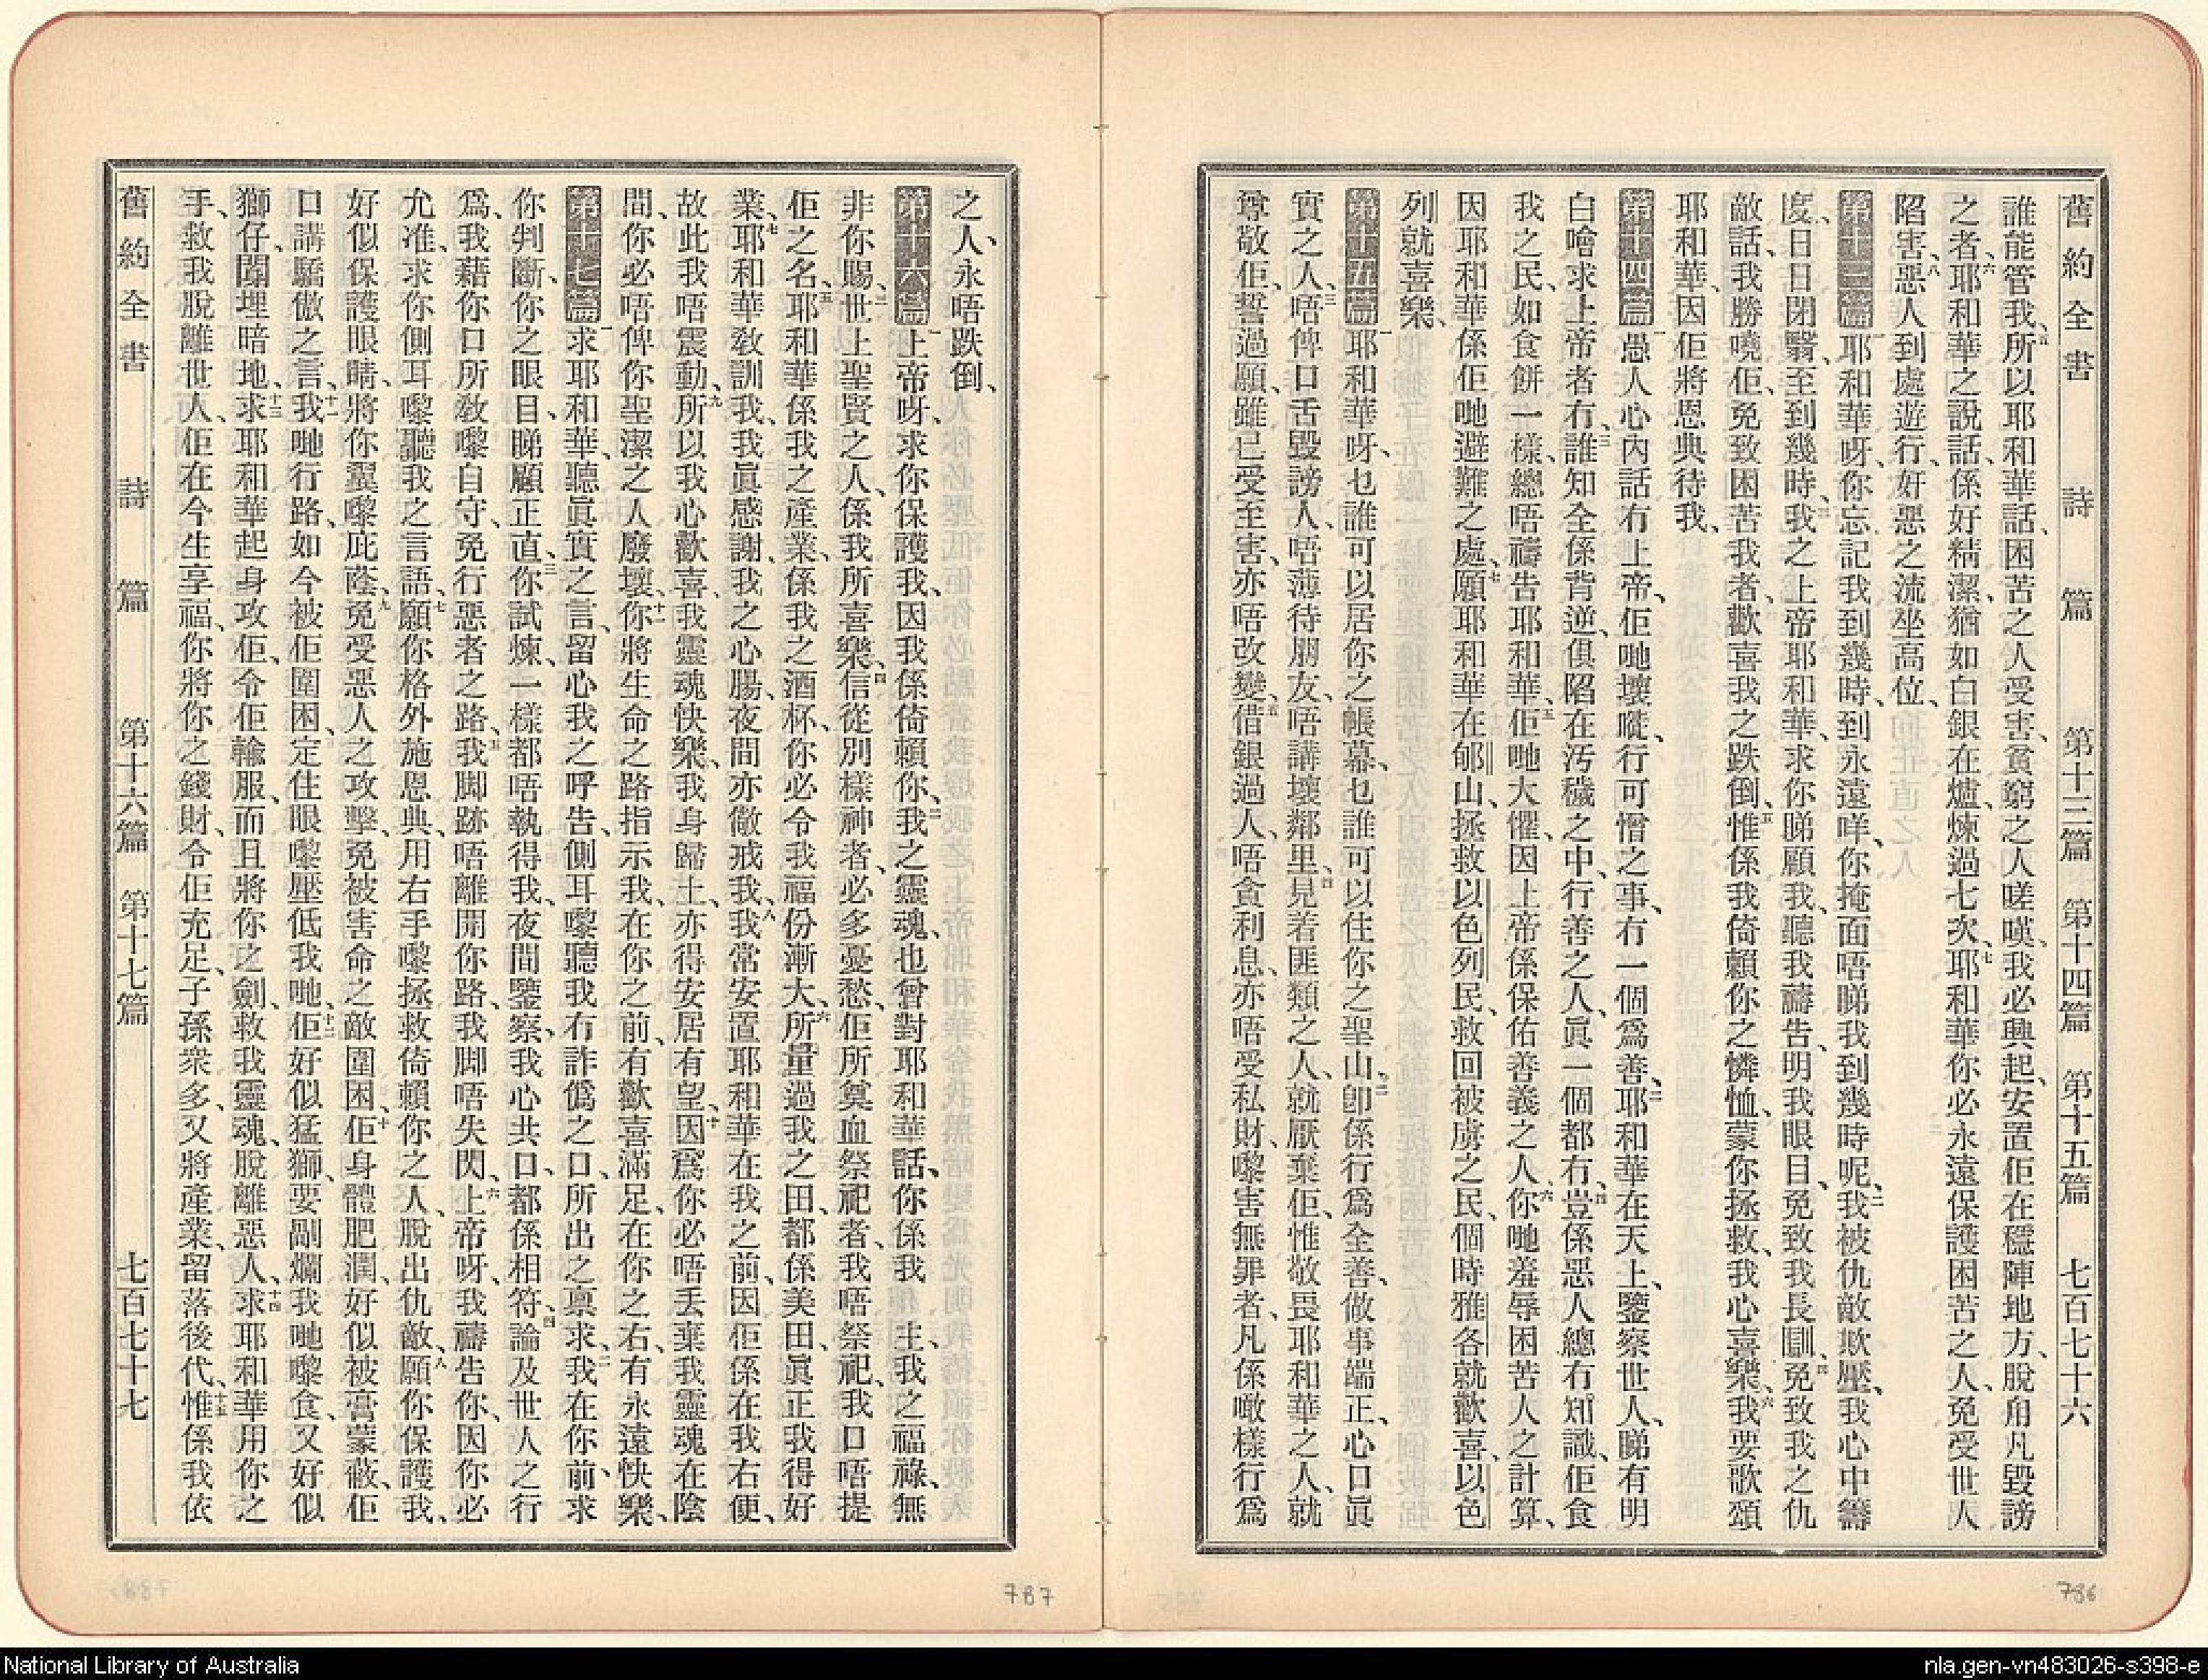 舊約全書　詩　篇　第十三篇　第十四篇　第十五篇　七百七十六
誰能管我、五所以耶和華話、困苦之人受害、貧窮之人嗟嘆、我必興起、安置佢在穩陣地方、脫甪凡毀謗
之者、六耶和華之說話、係好精潔、猶如白銀在爐、煉過七次、七耶和華你必永遠保護困苦之人、免受世人
陷害、八惡人到處遊行、好惡之流坐高位、
第十三篇 一耶和華呀、你忘記我到幾時、到永遠咩、你掩面唔睇我到幾時呢、二我被仇敵欺壓、我心中籌
度、日日閉翳、至到幾時、三我之上帝耶和華、求你睇顧我、聽我禱告、明我眼目、免致我長瞓、四免致我之仇
敵話、我勝嘵佢、免致困苦我者、歡喜我之跌倒、五惟係我倚賴你之憐恤、蒙你拯救、我心喜樂、六我要歌頌
耶和華、因佢將恩典待我、
第十四篇 一愚人心內話冇上帝、佢哋壞嘥、行可憎之事、冇一個爲善、二耶和華在天上、鑒察世人、睇有明
白噲求上帝者冇、三誰知全係背逆、俱陷在污穢之中、行善之人、眞一個都冇、四豈係惡人總冇知識、佢食
我之民、如食餅一樣、總唔禱告耶和華、五佢哋大懼、因上帝係保佑善義之人、六你哋羞辱困苦人之計算、
因耶和華係佢哋避難之處、七願耶和華在郇山、拯救以色列民、救回被虜之民、個時雅各就歡喜、以色
列就喜樂、
第十五篇 一耶和華呀、乜誰可以居你之帳幕、乜誰可以住你之聖山、二卽係行爲全善、做事端正、心口眞
實之人、三唔俾口舌毀謗人、唔薄待朋友、唔講壞鄰里、四見着匪類之人、就厭棄佢、惟敬畏耶和華之人、就
尊敬佢、誓過願、雖已受至害、亦唔改變、五借銀過人、唔貪利息、亦唔受私財、嚟害無罪者、凡係噉樣行爲
之人、永唔跌倒、
第十六篇 一上帝呀、求你保護我、因我係倚賴你、二我之靈魂、也曾對耶和華話、你係我　主、我之福祿、無
非你賜、三世上聖賢之人、係我所喜樂、四信從別樣神者、必多憂愁、佢所奠血祭祀者、我唔祭祀、我口唔提
佢之名、五耶和華係我之產業、係我之酒杯、你必令我福份漸大、六所量過我之田、都係美田、眞正我得好
業、七耶和華敎訓我、我眞感謝、我之心腸、夜間亦儆戒我、八我常安置耶和華在我之前、因佢係在我右便、
故此我唔震動、九所以我心歡喜、我靈魂快樂、我身歸土、亦得安居有望、十因爲你必唔丢棄我靈魂在陰
間、你必唔俾你聖潔之人廢壞、十一你將生命之路指示我、在你之前、有歡喜滿足、在你之右、有永遠快樂、
第十七篇 一求耶和華、聽眞實之言、留心我之呼告、側耳嚟聽我冇詐僞之口、所出之禀求、二我在你前、求
你判斷、你之眼目、睇顧正直、三你試煉一樣都唔執得我、夜間鑒察、我心共口、都係相符、四論及世人之行
爲、我藉你口所敎嚟自守、免行惡者之路、五我脚跡唔離開你路、我脚唔失閃、六上帝呀、我禱告你、因你必
允准、求你側耳嚟聽我之言語、七願你格外施恩典、用右手嚟拯救倚賴你之人、脫出仇敵、八願你保護我、
好似保護眼睛、將你翼嚟庇蔭、九免受惡人之攻擊、免被害命之敵圍困、十佢身體肥潤、好似被膏蒙蔽、佢
口講驕傲之言、十一我哋行路、如今被佢圍困、定住眼嚟壓低我哋、十二佢好似猛獅、要副爛我哋嚟食、又好似
獅仔、閞埋暗地、十三求耶和華起身攻佢、令佢輸服、而且將你之劍、救我靈魂、脫離惡人、十四求耶和華用你之
手、救我脫離世人、佢在今生享福、你將你之錢財、令佢充足、子孫衆多、又將產業、留落後代、十五惟係我依
舊約全書　詩　篇　第十六篇　第十七篇　七百七十七
786
787
National Library of Australia
nla.gen-vn483026-s398-e